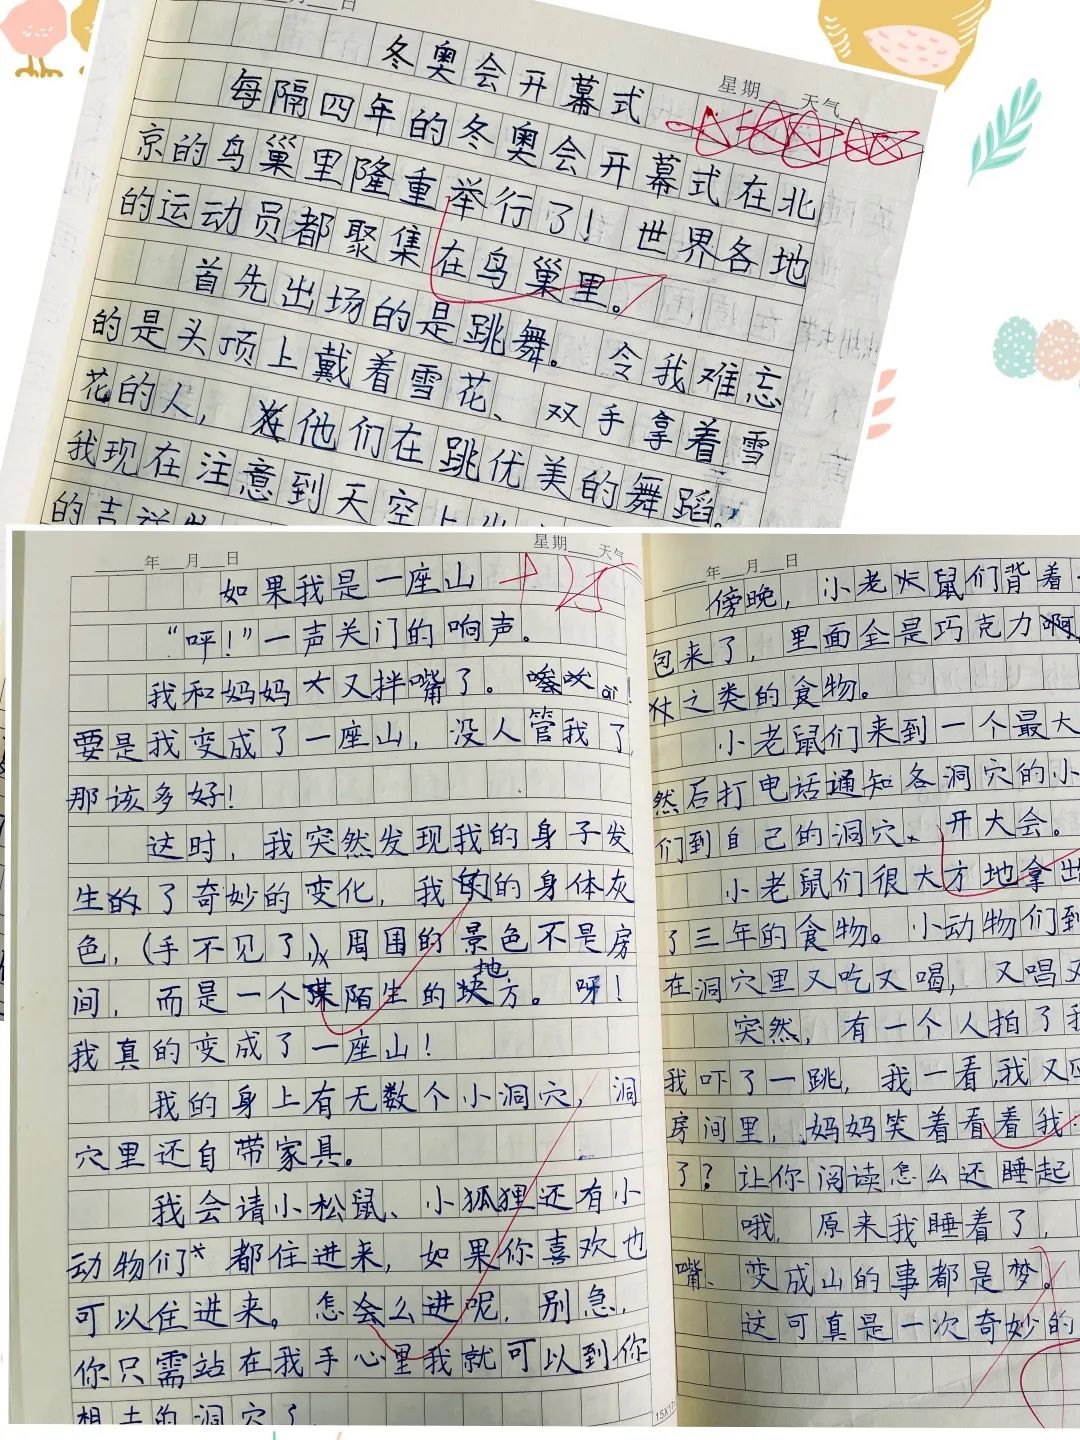 月 日
星期 天气
冬奥会开幕式
每隔四年的冬奥会开幕式在北
京的鸟巢里隆重举行了！世界各地
的运动员都聚集在鸟巢里。
首先出场的是跳舞。令我难忘
的是头顶上戴着雪花、双手拿着雪
花的人，他们在跳优美的舞蹈。
我现在注意到天空上
的吉祥
年 月 日
星期 天气
如果我是一座山
“呯！”一声关门的响声。
我和妈妈又拌嘴了。
要是我变成了一座山，没人管我了，
那该多好！
这时，我突然发现我的身子发
生了奇妙的变化，我的身体灰
色，（手不见了），周围的景色不是房
间，而是一个陌生的地方。呀！
我真的变成了一座山！
我的身上有无数个小洞穴，洞
穴里还自带家具。
我会请小松鼠、小狐狸还有小
动物们都住进来，如果你喜欢也
可以住进来。怎么进呢，别急，
你只需站在我手心里我就可以到你
想去的洞穴了
年 月 日
傍晚，小老鼠们背着
包来了，里面全是巧克力啊
之类的食物。
小老鼠们来到一个最大
然后打电话通知各洞穴的小
们到自己的洞穴、开大会。
小老鼠们很大方地拿出
了三年的食物。小动物们到
在洞穴里又吃又喝，又唱又
突然，有一个人拍了我
我吓了一跳，我一看，我又
房间里，妈妈笑着看着我
了？让你阅读怎么还睡起
哦，原来我睡着了，
嘴、变成山的事都是梦。
这可真是一次奇妙的